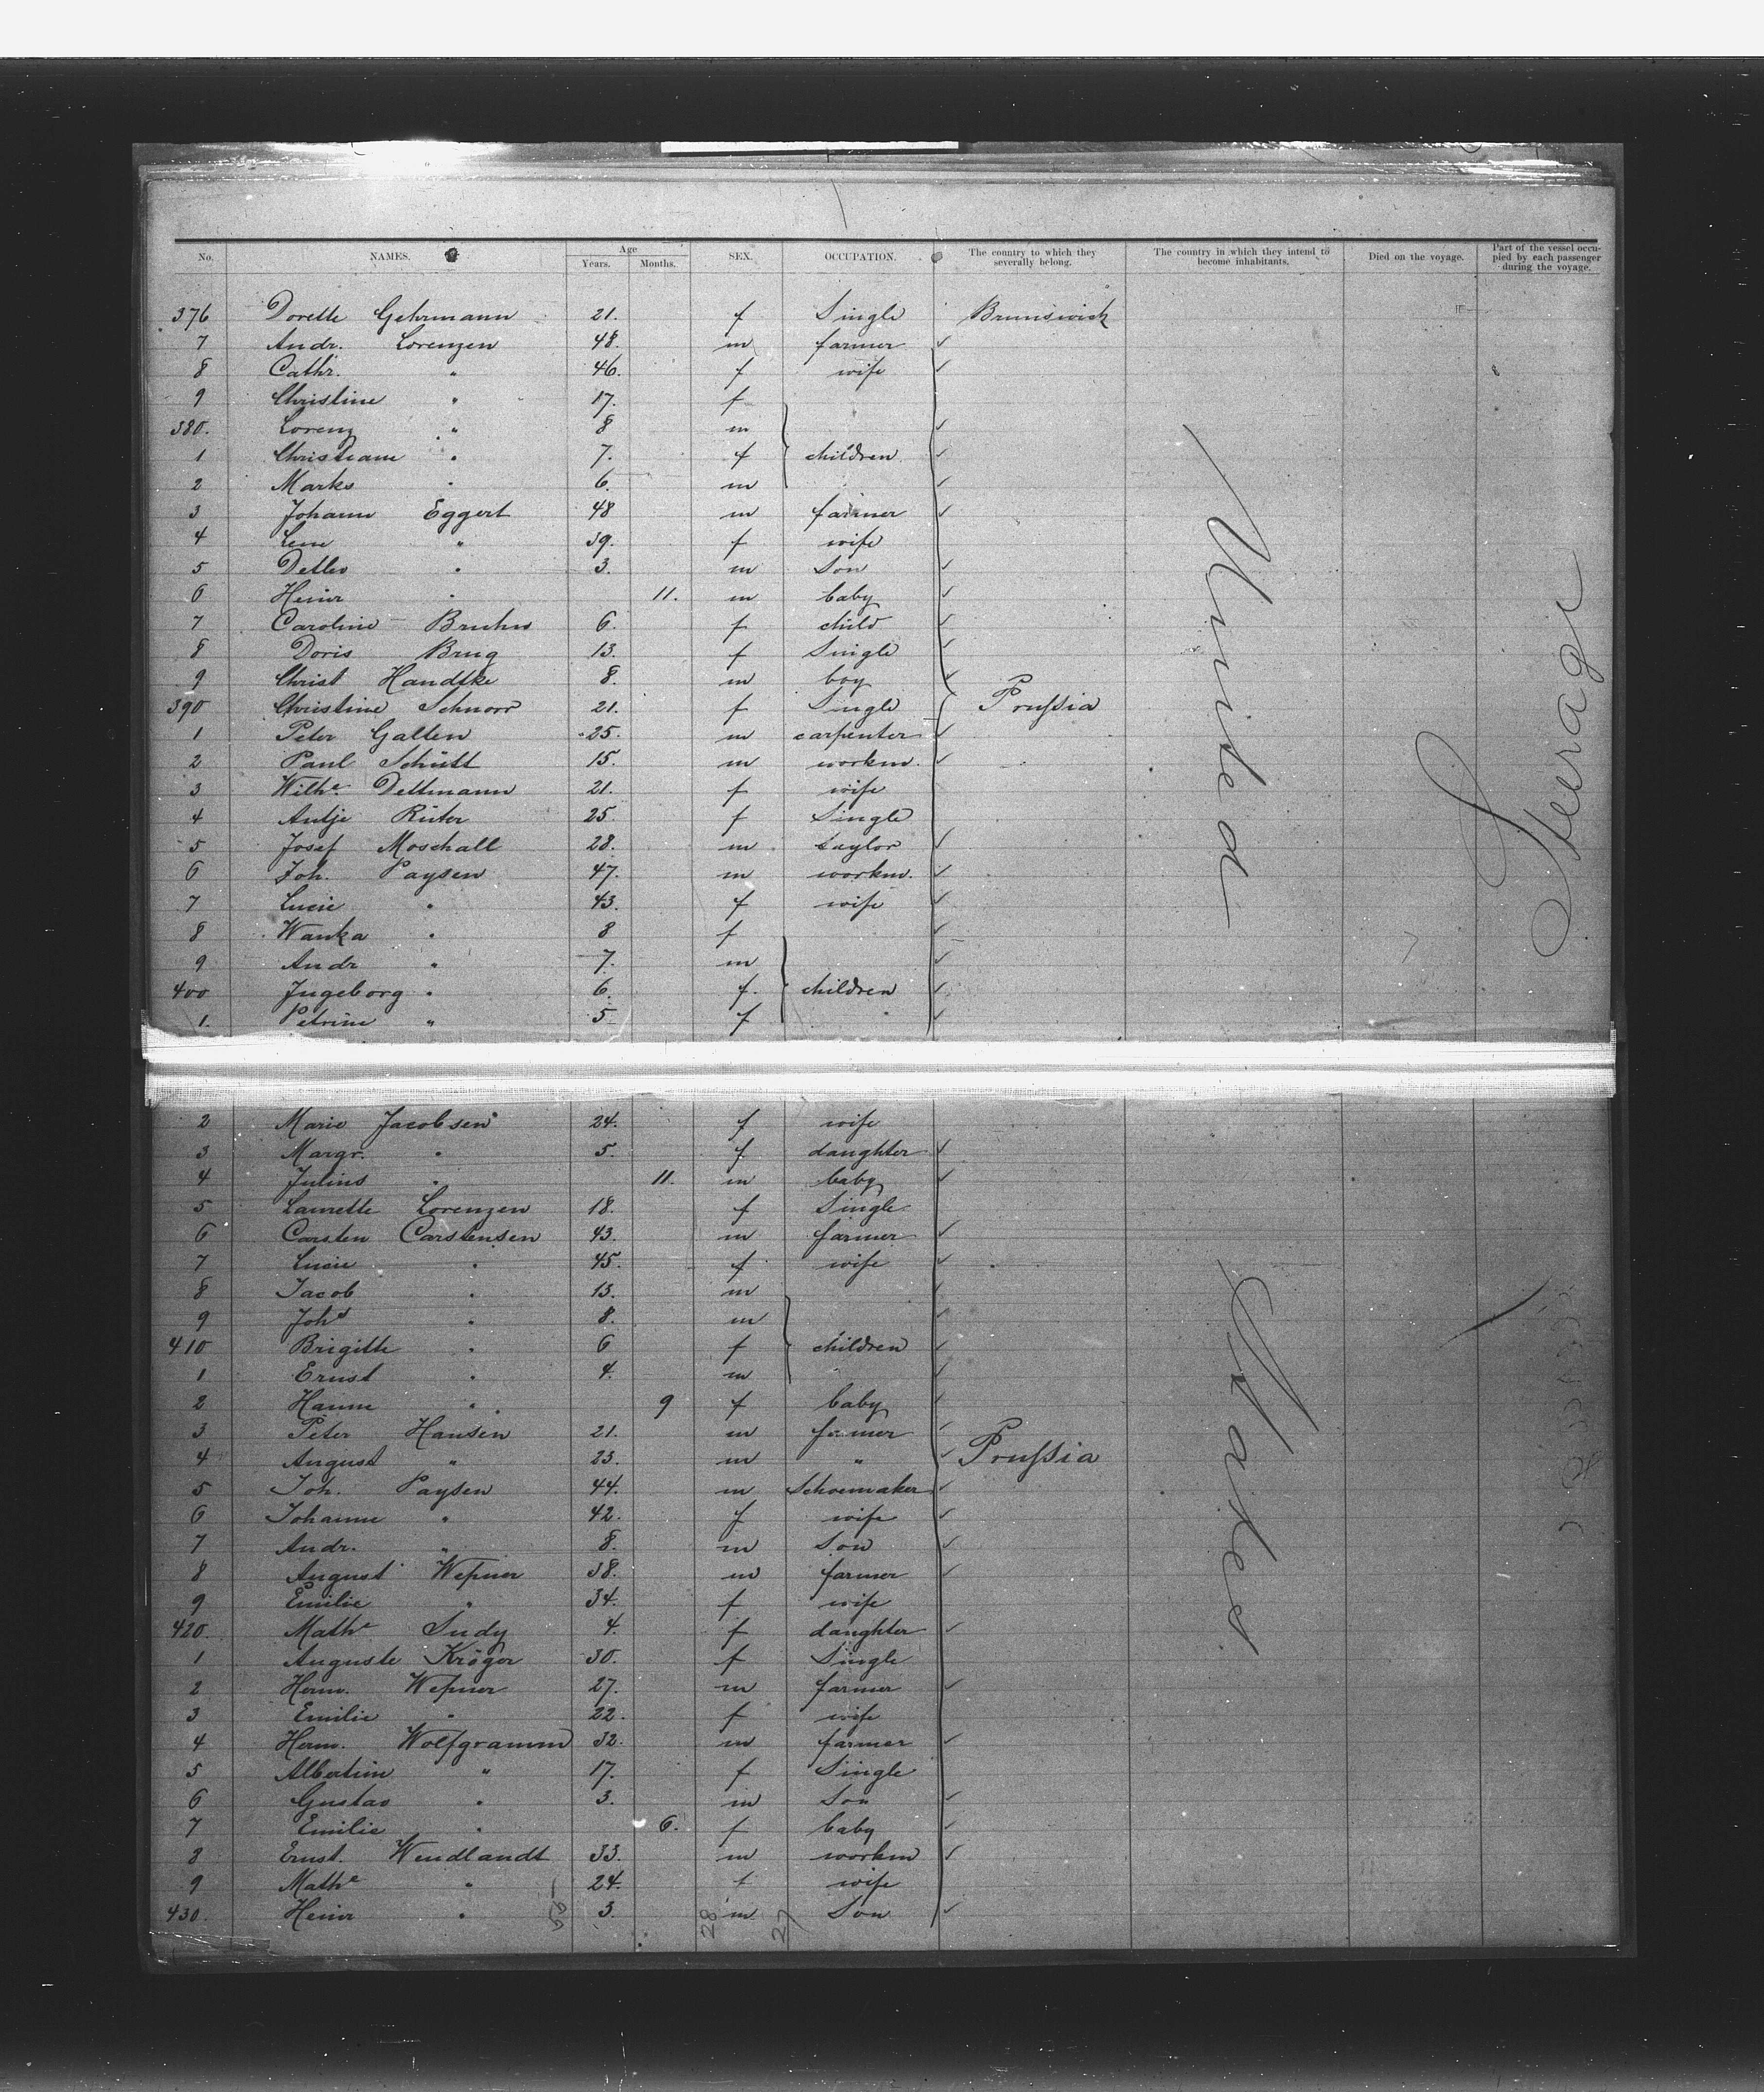 No. NAMES. Age Years. Months. SEX. OCCUPATION. The country to which they severally belong. The country in which they intend to become inhabitants. Died on the voyage. Part of the vessel occupied by each passenger during the voyage.
376 Dorette Gehrmann 21. f Single Brunswick
7 Andr. Lorenzen 48. m farmer
8 Cathr. " 46. f wife
9 Christine " 17. f
380. Lorenz " 8 m
1 Christiane " 7. f children
2 Marks " 6. m
3 Johann Eggert 48 m farmer
4 Lene " 39. f wife
5 Detlev " 3. m Son
6 Heinr " 11. m baby
7 Caroline Bruhn 6. f child
8 Doris Brug 13. f Single
9 Christ Handtke 8. m boy
390 Christine Schnorr 21. f Single Prussia
1 Peter Gallen 25. m carpenter
2 Paul Schütt 15. m workm.
3 Withe. Dettmann 21. f wife
4 Antje Rüter 25. f Single
5 Josef Moschall 28. m taylor
6 Joh. Paysen 47. m workm.
7 Lucie " 43. f wife
8 Wanka " 8 f
9 Andr " 7. m
400 Ingeborg " 6. f. children
1. Petrine " 5 f
2 Marie Jacobsen 24. f wife
3 Margr. " 5. f. daughter
4 Julius " 11. m baby
5 Laurette Lorenzen 18. f Single
6 Carsten Carstensen 43. m farmer
7 Lucie " 45. f wife
8 Jacob " 13. m
9 Joh " 8. m
410 Brigitte " 6 f children
1 Ernst " 4. m
2 Hanne " 9 f baby
3 Peter Hansen 21. m farmer
4 August " 23. m " Prussia
5 Joh. Paysen 44. m Schoemaker
6 Johanne " 42. f wife
7 Andr. " 8. m Son
8 August 38. m farmer
9 Emilie " 34. f wife
420. Mathe Sudy 4. f daughter
1 Auguste Kröger 30. f Single
2 Herm. 27. m farmer
3 Emilie " 22. f wife
4 Herm. Wolfgramm 32. m farmer
5 Albertine " 17. f Single
6 Gustav " 3. m Son
7 Emilie " 6. f baby
8 Ernst. Wendlandt 33. m workm
9 Mathe " 24. f wife
430. Heinr " 3. m Son
United States
Steerage
29 28 27